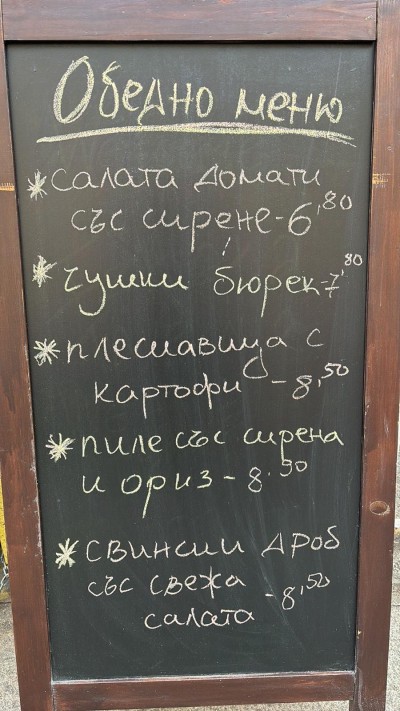 Обедно меню
* салата домати
със сирене - 6,80
* чушки бюрек - 7,80
* плескавица с
картофи - 8,50
* пиле със сирена
и ориз - 8.50
* свински дроб
със свежа
салата - 8,50